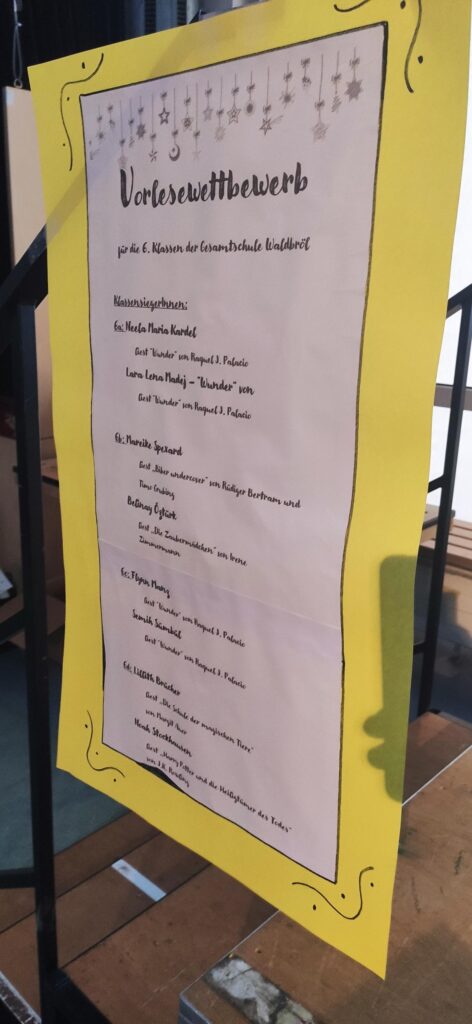 Vorlesewettbewerb
für die 6. Klassen der Gesamtschule Waldbröl
KlassensiegerInnen:
6a: Neela Maria Kardel
liest "Wunder" von Raquel J. Palacio
Lara Lena Madej – "Wunder" von
liest "Wunder" von Raquel J. Palacio
6b: Mareike Spexard
liest „Biber undercover" von Rüdiger Bertram und
Timo Grubing
Betinay Öztürk
liest „Die Zaubermädchen" von Irene
Zimmermann
6c: Flynn Manz
liest "Wunder" von Raquel J. Palacio
Semih Sümbül
liest "Wunder" von Raquel J. Palacio
6d: Lillith Brücher
liest „Die Schule der magischen Tiere"
von Margit Auer
Noah Stockhausen
liest „Harry Potter und die Heiligtümer des Todes"
von J.K. Rowling